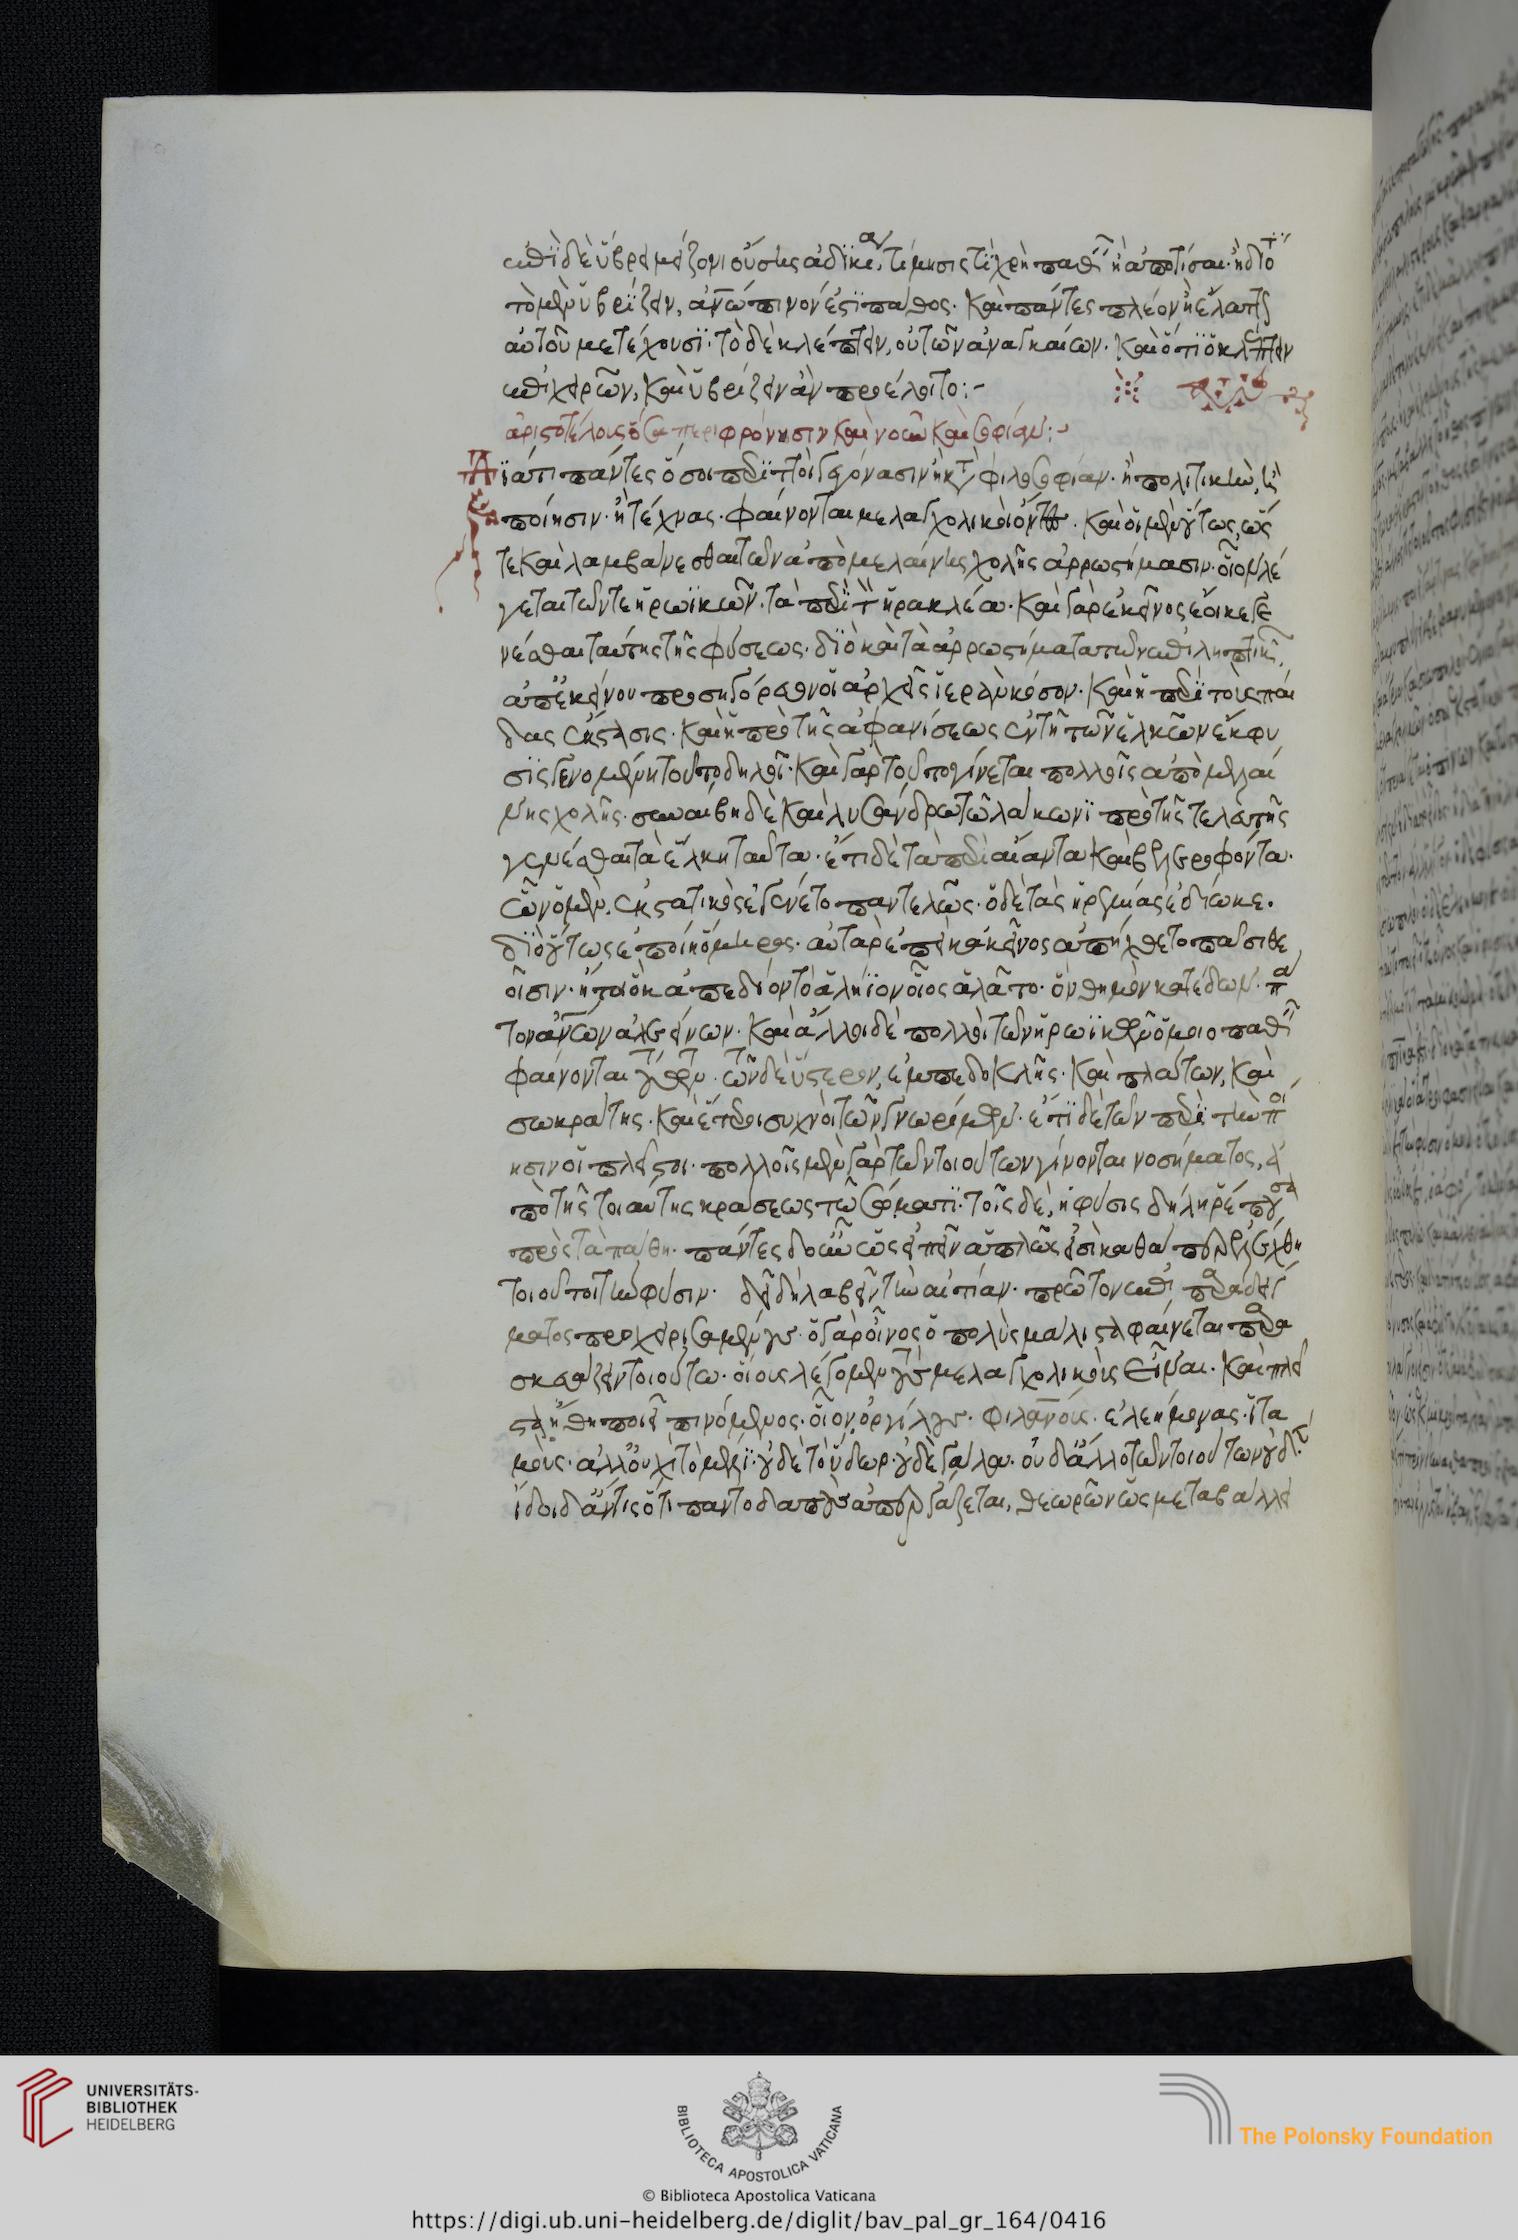 ἐπὶ δὲ ὕβρει μείζονι οὔσης ἀδικίας, τίμησις τί χρὴ παθεῖν ἢ ἀποτίσαι. ἢ διότι
τὸ μὲν ὑβρίζειν, ἀνώπινον ἐστὶ πάθος. καὶ πάντες πλέον ἢ ἔλαττον
αὐτοῦ μετέχουσι. τὸ δὲ κλέπτειν, οὐ τῶν ἀναγκαίων. καὶ ὅτι ὁ κλέπτειν
ἐπιχειρῶν, καὶ ὑβρίζειν ἂν προέλοιτο:-
ἀριστοτέλους ὅσα περὶ φρόνησιν καὶ νοῦν καὶ σοφίαν:-
Διατί πάντες ὅσοι περιττοὶ γεγόνασιν ἢ κατὰ φιλοσοφίαν. ἢ πολιτικὴν, ἢ
ποίησιν. ἢ τέχνας. φαίνονται μελαγχολικοὶ ὄντες. καὶ οἱ μὲν οὕτως, ὥς
τε καὶ λαμβάνεσθαι τῶν ἀπὸ μελαίνης χολῆς ἀρρωστήμασιν. οἷον λέ
γεται τῶν τε ἡρωϊκῶν. τὰ περὶ τὸν ἡρακλέα. καὶ γὰρ ἐκεῖνος ἔοικε γε
νέσθαι ταύτης τῆς φύσεως. διὸ καὶ τὰ ἀρρωστήματα τῶν ἐπιληπτικῶν,
ἀπ' ἐκείνου προσηγόρευον οἱ ἀρχαῖοι ἱερὰν νόσον. καὶ ἡ περὶ τοὺς παῖ
δας ἔκστασις. καὶ ἡ πρὸ τῆς ἀφανίσεως ἐν τῇ τῶν ἑλκῶν ἔκφυ
σις γενομένη τοῦτο δηλοῖ. καὶ γὰρ τοῦτο γίνεται πολλοῖς ἀπὸ μελαί
νης χολῆς. συνέβη δὲ καὶ λυσάνδρῳ τῷ λάκωνι πρὸ τῆς τελευτῆς
γενέσθαι τὰ ἕλκη ταῦτα. ἔτι δὲ τὰ περὶ αἴαντα καὶ βελλεροφόντα.
ὧν ὁ μὲν, ἐκστατικὸς ἐγένετο παντελῶς. ὁ δὲ τὰς ἐρημίας ἐδίωκε.
διὸ οὕτως ἐποίησεν ὅμηρος. αὐτὰρ ἐπεὶ κἀκεῖνος ἀπήχθετο πᾶσι θε
οῖσιν. ἤτοι ὃ κὰπ πεδίον τὸ ἀλήϊον οἶος ἀλᾶτο. ὃν θυμὸν κατέδων. πά
τον ἀνων ἀλεείνων. καὶ ἄλλοι δὲ πολλοὶ τῶν ἡρώων ὁμοιοπαθεῖς
φαίνονται τούτοις. τῶν δὲ ὕστερον, ἐμπεδοκλῆς. καὶ πλάτων, καὶ
σωκράτης. καὶ ἕτεροι συχνοὶ τῶν γνωρίμων. ἔτι δὲ τῶν περὶ τὴν ποί
ησιν οἱ πλεῖστοι. πολλοῖς μὲν γὰρ τῶν τοιούτων γίνονται νοσήματος, ἀ
πὸ τῆς τοιαύτης κράσεως τῷ σώματι. τοῖς δὲ, ἡ φύσις δήλη ῥέπουσα
πρὸς τὰ πάθη. πάντες δ' οὖν ὡς εἰπεῖν ἁπλῶς εἰσὶ καθάπερ ἐλέχθη
τοιοῦτοι τὴν φύσιν. δεῖ δὴ λαβεῖν τὴν αἰτίαν. πρῶτον ἐπὶ παραδείγ
ματος προχειρισαμένους. ὁ γὰρ οἶνος ὁ πολὺς μάλιστα φαίνεται παρα
σκευάζειν τοιούτους. οἵους λέγομεν τοὺς μελαγχολικοὺς εἶναι. καὶ πλεῖ
στα ἤθη ποιεῖ πινόμενος. οἷον ὀργίλους. φιλανους. ἐλεήμονας. ἰτα
μούς. ἀλλ' οὐχὶ τὸ μέλι. οὐδὲ τὸ ὕδωρ. οὐδὲ γάλα. οὐδ' ἄλλο τῶν τοιούτων οὐδέν.
ἴδοι δ' ἄν τις ὅτι παντοδαποὺς ἀπεργάζεται, θεωρῶν ὡς μεταβάλλει
UNIVERSITÄTS-
BIBLIOTHEK
HEIDELBERG
BIBLIOTECA APOSTOLICA VATICANA
The Polonsky Foundation
© Biblioteca Apostolica Vaticana
https://digi.ub.uni-heidelberg.de/diglit/bav_pal_gr_164/0416